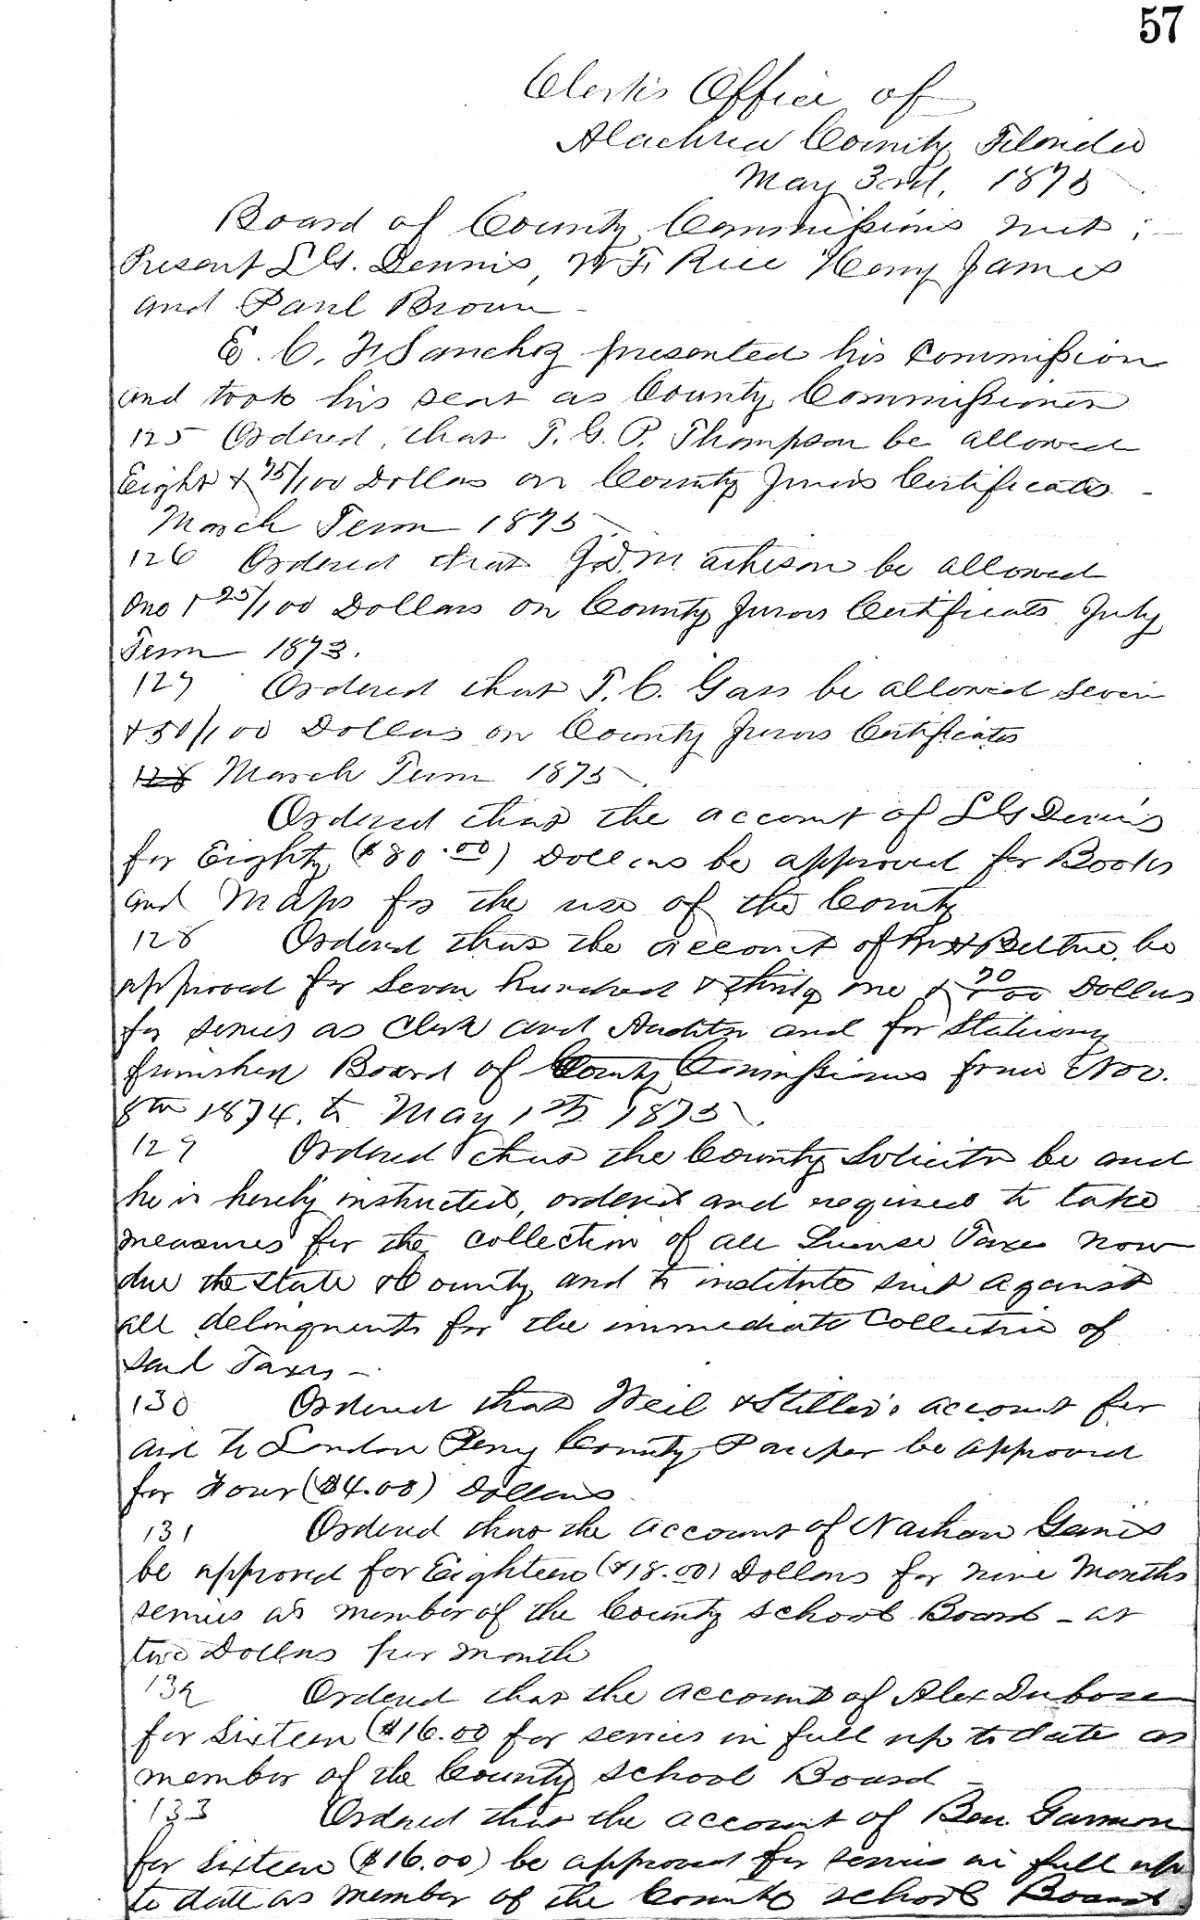 57
Clerk's Office of
Alachua County Florida
May 3rd, 1875
Board of County Commissioners met ;
Present L G. Dennis, W F. Rice Henry James
and Paul Brown -
E. C. F Sanchez presented his Commission
and took his seat as County Commissioner
125 Ordered, that T. G. P. Thompson be allowed
Eight & 75/100 Dollars on County Jurors Certificates -
March Term 1875
126 Ordered that J. D. Mathison be allowed
One & 25/100 Dollars on County Jurors Certificate July
Term 1873.
127 Ordered that T. C. Gass be allowed Seven
& 50/100 Dollars on County Jurors Certificates
128 March Term 1875.
Ordered that the account of L G Dennis
for Eighty ($80.00) Dollars be approved for Books
and Maps for the use of the County
128 Ordered that the account of be
approved for Seven hundred & thirty one & 20/100 Dollars
for services as Clerk and Auditor and for Stationery
furnished Board of County Commissioners from Nov.
8th 1874. to May 1st 1875.
129 Ordered that the County Solicitor be and
he is hereby instructed, ordered and required to take
measures for the collection of all License Taxes now
due the State & County and to institute suit against
all delinquents for the immediate Collection of
said Taxes -
130 Ordered that Weil & Stiller's account for
aid to London Perry County Pauper be approved
for Four ($4.00) Dollars
131 Ordered that the account of Nathan Geines
be approved for Eighteen ($18.00) Dollars for nine Months
services as member of the County School Board - at
two Dollars per month
132 Ordered that the account of Alex Dubose
for Sixteen ($16.00 for services in full up to date as
member of the County School Board -
133 Ordered that the account of Ben. Garmon
for Sixteen ($16.00) be approved for services in full up
to date as member of the County School Board